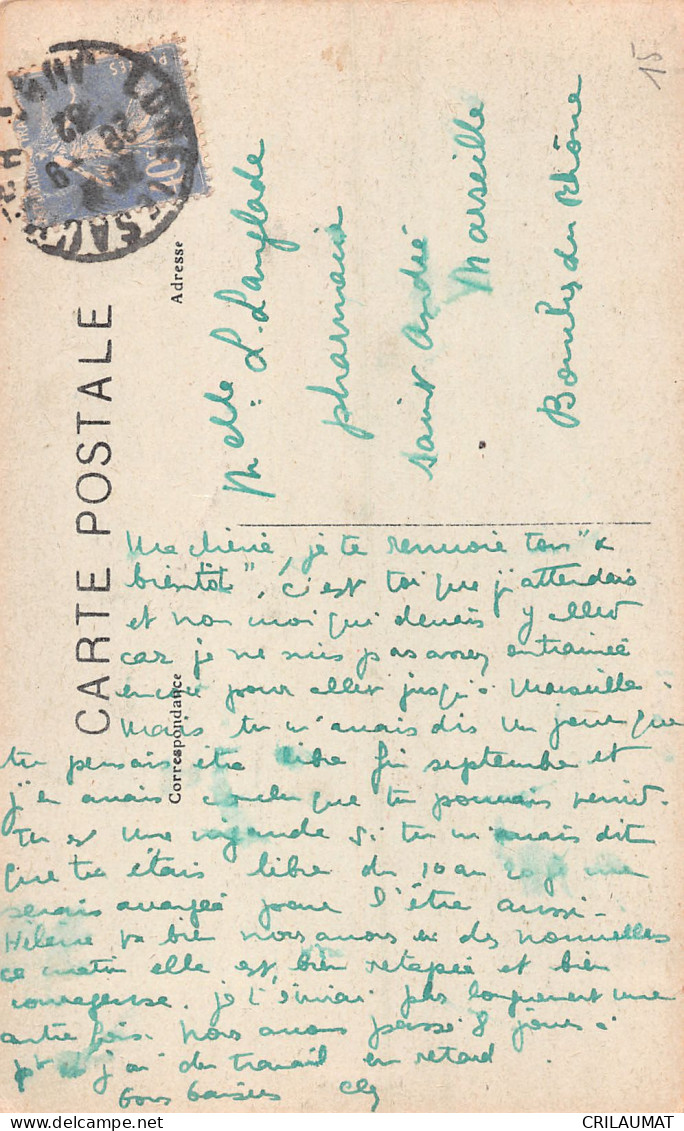 15
CARTE POSTALE
Adresse
Melle L. Langlade
pharmacie
Saint André
Marseille
Bouches du Rhône
Correspondance
Ma chérie, je te renvoie ton "à
bientôt", c'est toi que j'attendais
et non moi qui devais y aller
car je ne suis pas assez entrainée
encore pour aller jusqu'à Marseille.
Mais tu m'avais dis un jour que
tu pensais être libre fin septembre et
j'en avais conclu que tu pouvais venir.
Tu es une si tu m'avais dit
que tu étais libre du 10 au 20 je me
serais arrangée pour l'être aussi.
Hélène va bien nous avons eu des nouvelles
ce matin elle est bien retapée et bien
courageuse. je t'écrirai plus longuement une
autre fois. Nous avons passé 8 jours à
j'ai du travail en retard
Bons baisers
CRILAUMAT